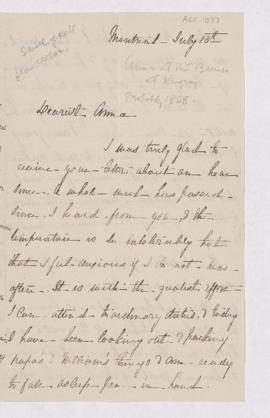 ACC 1073
Montreal - July 13th
Anna at
at
Probably 1868
Dearest Anna
I was truly glad to
receive your letter about an hour
since. A whole week has passed
since I heard from you, & the
temperature is so intolerably hot
that I feel anxious if I do not hear
often. It is with the greatest effort
I can attend to ordinary duties, & today
I have been looking out & packing
Papa's & William's things & am ready
to fall asleep pen in hand.